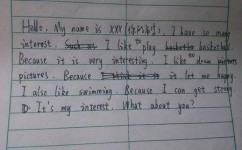 Hello, My name is xxx (你的名字), I have so many
interest. Such as I like to play basketba basketball
Because it is very interesting. I like to draw pictures
pictures. Because I think it is it let me happy.
I also like swimming. Because I can get strong
ID. It's my interest. What about you?